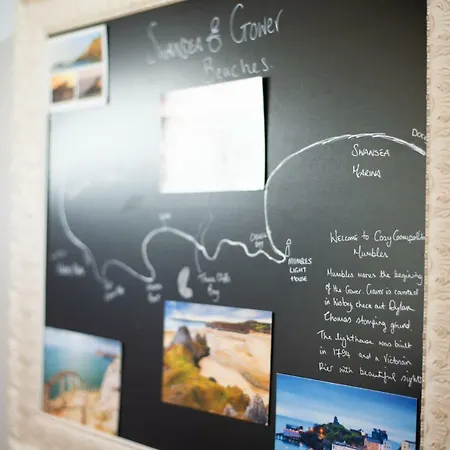 Swansea & Gower
Beaches.
Swansea
Marina
Mumbles
Light
House
Three Cliffs
Bay
Welcome to CosyCosmopolit
Mumbles
Mumbles marks the beginning
of the Gower. Gower is covered
in history check out Dylan
Thomas stomping ground
The lighthouse was built
in 1794 and a Victorian
Pier with beautiful sights